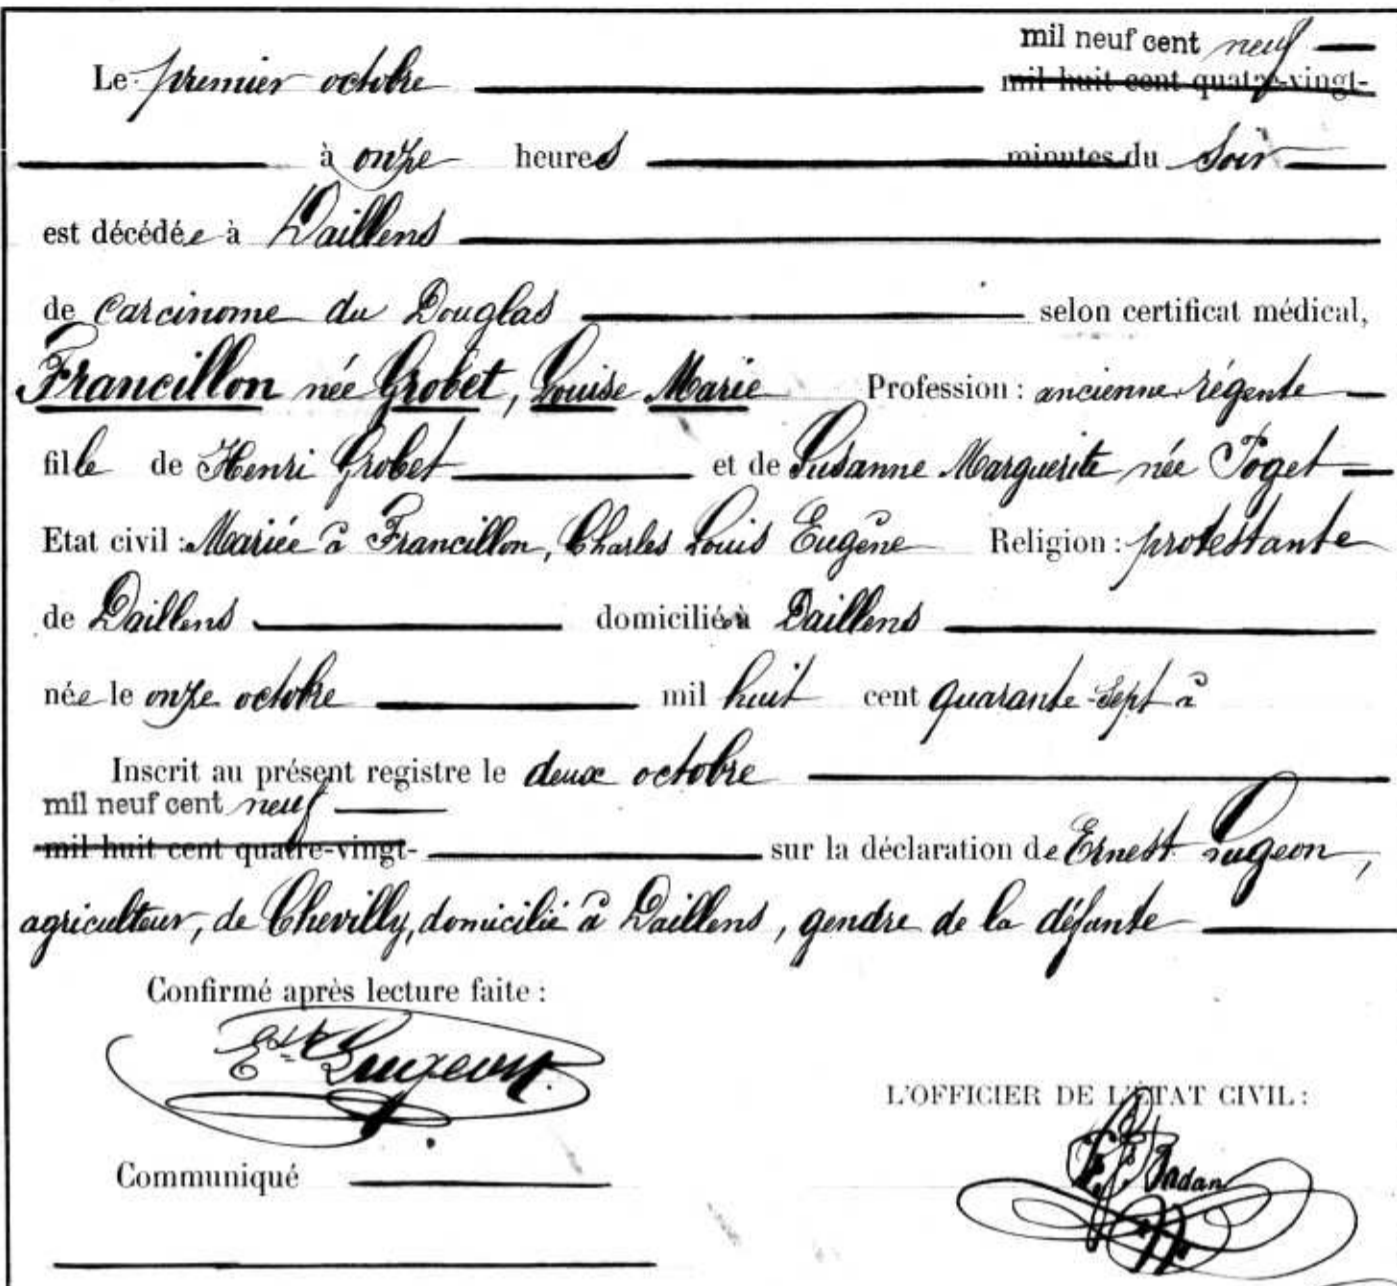 mil neuf cent neuf
Le premier octobre mil huit cent quatre-vingt-
à onze heures minutes du soir
est décédée à Daillens
de Carcinome du Douglas selon certificat médical,
Francillon née Grobet, Louise Marie Profession : ancienne régente
fille de Henri Grobet et de Susanne Marguerite née Poget
Etat civil : Mariée à Francillon, Charles Louis Eugène Religion : protestante
de Daillens domiciliée à Daillens
née le onze octobre mil huit cent quarante-sept à
Inscrit au présent registre le deux octobre
mil neuf cent neuf
mil huit cent quatre-vingt- sur la déclaration de Ernest Pugeon,
agriculteur, de Chevilly, domicilié à Daillens, gendre de la défunte
Confirmé après lecture faite :
L'OFFICIER DE L'ÉTAT CIVIL :
Communiqué